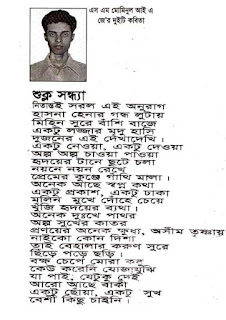 এস এম মোমিনুল আই এ
জে'র দুইটি কবিতা
শুক্ল সন্ধ্যা
নিতান্তই সরল এই অনুরাগ
হাসনা হেনার গন্ধ লুটায়
মিহিন সুরে বাঁশি বাজে
একটু লজ্জার মৃদু হাসি
দুজনের এই দেখাদেখি।
একটু নেওয়া, একটু দেওয়া
অল্প অল্প চাওয়া পাওয়া
হৃদয়ের টানে ছুটে চলা
নয়নে নয়ন রেখে
প্রেমের কুঞ্জে গাঁথি মালা।
অনেক আছে স্বপ্ন কথা
একটু প্রকাশ, একটু ঢাকা
মলিন মুখে দোঁহে চেয়ে
খুঁজি হৃদয়ের ব্যথা।
অনেক দুঃখে পাথর
অল্প সুখের কাতর
প্রণয়ের অনেক ক্ষুধা, অসীম তৃষ্ণায়
নাইকো কোন দিশা
তাই বেহালার করুণ সুরে
ছিঁড়ে পড়ে ছড়ি।
বক্ষ চেপে মোরা কভু
কেউ করেনি যোজাযুঝি
যা পাই, যেটুকু দেই
আরো আছে বাকী
একটু ছোঁয়া, একটু সুখ
বেশী কিছু চাইনি।